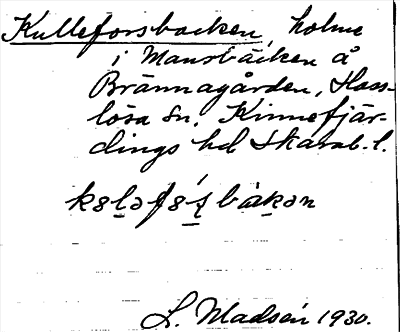 Kulleforsbacken, holme
i Mansbäcken å
Brännagården, Hass-
lösa sn. Kinnefjär-
dings hd Skarab. l.
L. Madsén 1930.